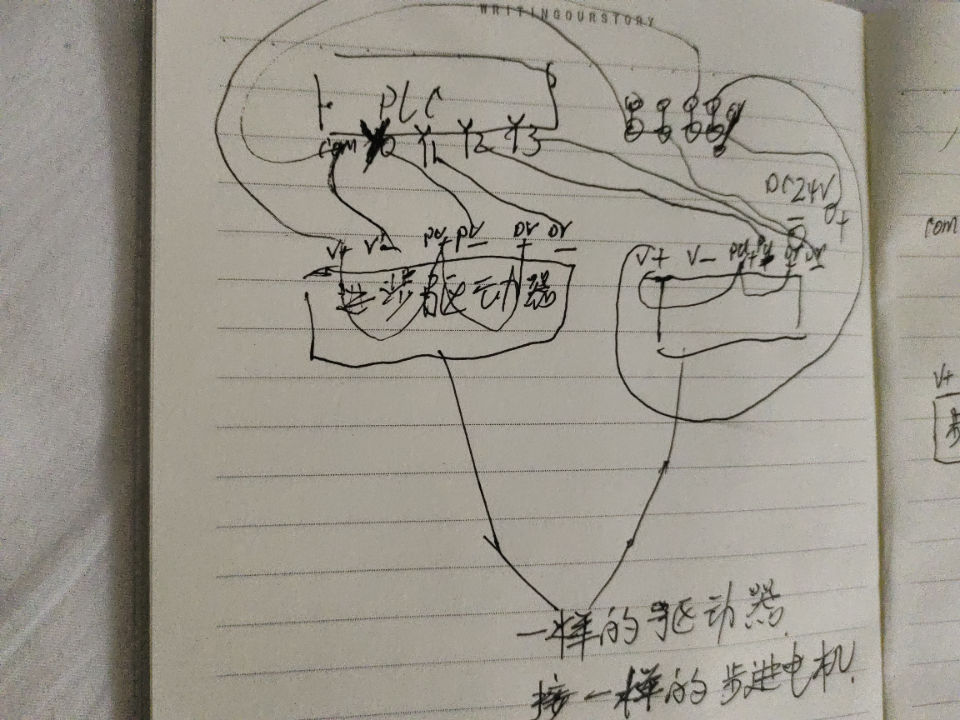 WRITINGOURSTORY
PLC
com Y0 Y1 Y2 Y3
DC24V
- +
com
V+ V- PU+ PU- DR+ DR-
V+ V- PU+ PU- DR+ DR-
步步驱动器
V+
步
一样的驱动器
接一样的步进电机.